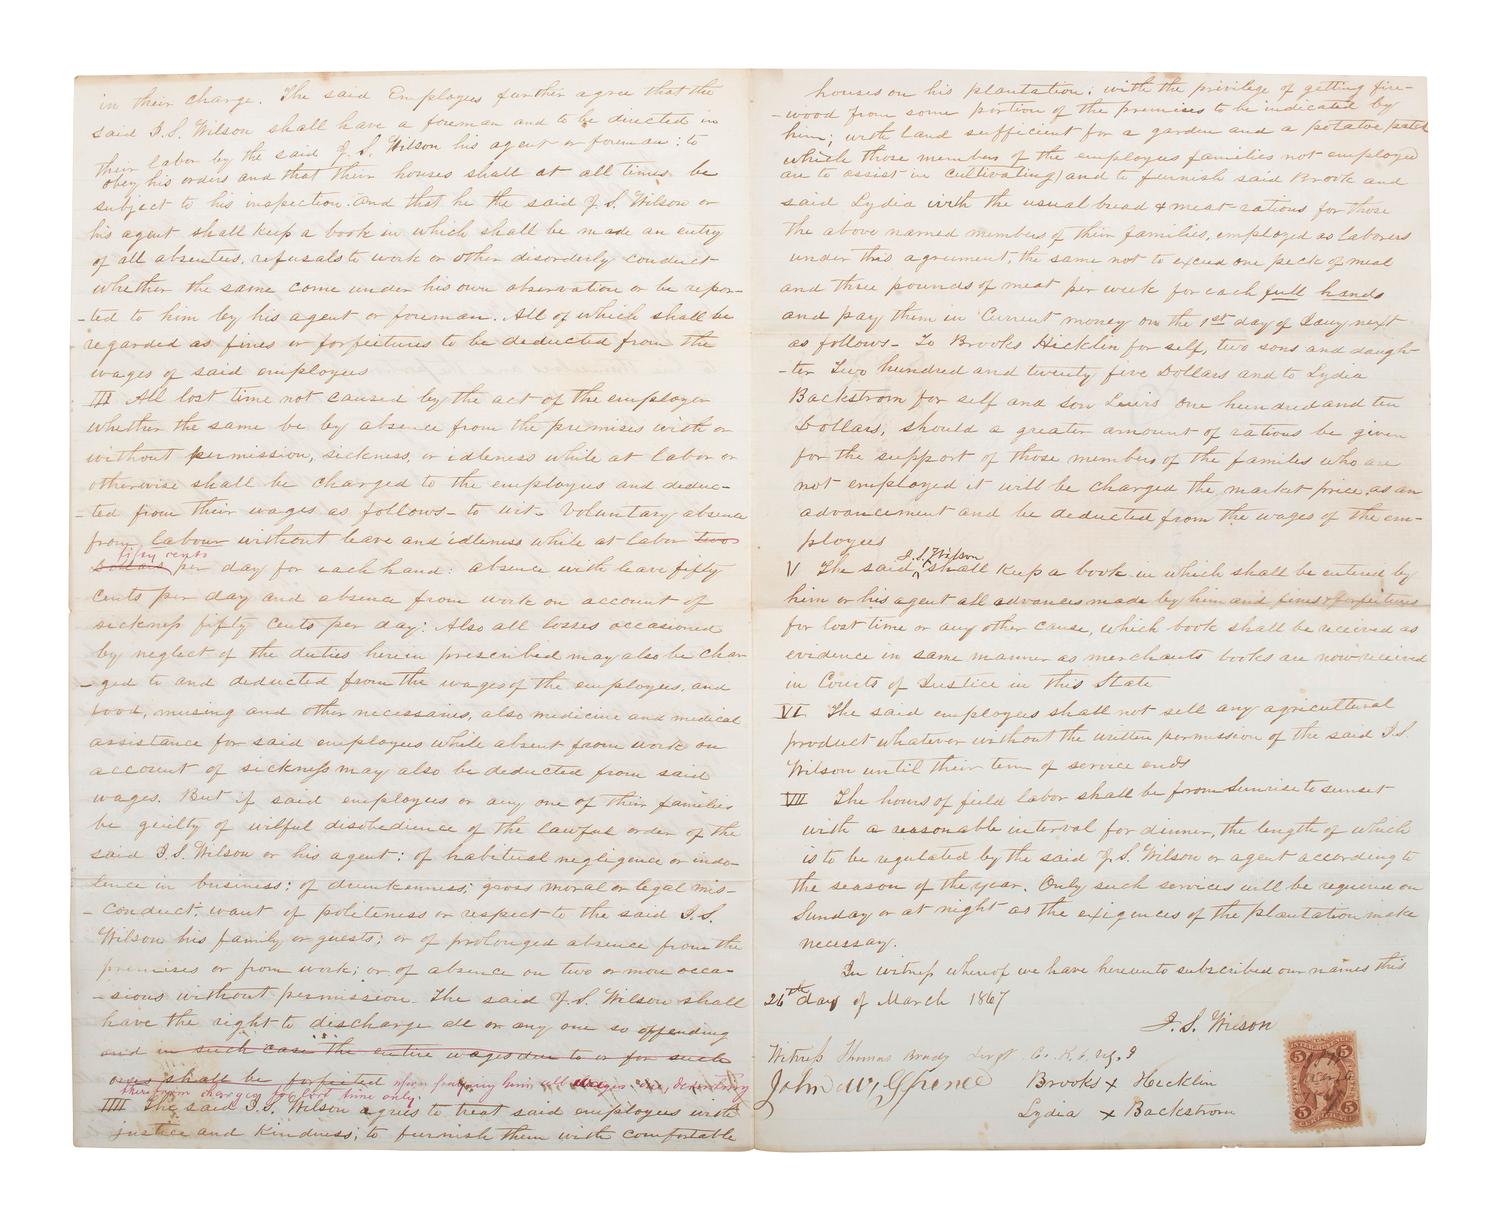 in their charge. The said Employees further agree that the
said I.S. Wilson shall have a foreman and to be directed in
their labor by the said J. S. Wilson his agent or foreman: to
obey his orders and that their houses shall at all times be
subject to his inspection. And that he the said J. S. Wilson or
his agent shall keep a book in which shall be made an entry
of all absentees, refusals to work or other disorderly conduct
whether the same come under his own observation or be repor-
-ted to him by his agent or foreman. All of which shall be
regarded as fines or forfeitures to be deducted from the
wages of said employees
III All lost time not caused by the act of the employer
whether the same be by absence from the premises with or
without permission, sickness, or idleness while at labor or
otherwise shall be charged to the employees and deduc-
-ted from their wages as follows - to wit - voluntary absence
from labour without leave and idleness while at labor two
fifty cents
dollars per day for each hand: absence with leave fifty
cents per day and absence from work on account of
sickness fifty cents per day: Also all losses occasioned
by neglect of the duties herein prescribed may also be char
-ged to and deducted from the wages of the employees, and
food, nursing and other necessaries, also medicine and medical
assistance for said employees while absent from work on
account of sickness may also be deducted from said
wages. But if said employees or any one of their families
be guilty of wilful disobedience of the lawful order of the
said I.S. Wilson or his agent: of habitual negligence or indo-
lence in business: of drunkenness; gross moral or legal mis-
-conduct: want of politeness or respect to the said I.S.
Wilson his family or guests; or of prolonged absence from the
premises or from work; or of absence on two or more occa-
-sions without permission. The said J.S. Wilson shall
have the right to discharge all or any one so offending
and in such case the entire wages due to or for such
ones shall be forfeited upon paying him all wages due, deducting
therefrom charges for lost time only.
IIII The said I.S. Wilson agrees to treat said employees with
justice and kindness; to furnish them with comfortable
houses on his plantation; with the privilege of getting fire-
-wood from some portion of the premises to be indicated by
him; with land sufficient for a garden and a potatoe patch
which those members of the employees families not employed
are to assist in cultivating) and to furnish said Brook and
said Lydia with the usual bread & meat rations for those
the above named members of their families, employed as laborers
under this agreement, the same not to exceed one peck of meal
and three pounds of meat per week for each full hands
and pay them in Current money on the 1st day of Jany next
as follows - To Brooks Hicklin for self, two sons and daugh-
-ter Two hundred and twenty five Dollars and to Lydia
Backstrom for self and son Lewis one hundred and ten
Dollars, should a greater amount of rations be given
for the support of those members of the families who are
not employed it will be charged the market price, as an
advancement and be deducted from the wages of the em-
ployees
J.S. Wilson
V The said shall keep a book in which shall be entered by
him or his agent all advances made by him and fines & forfeitures
for lost time or any other cause, which book shall be received as
evidence in same manner as merchants books are now received
in Courts of Justice in this State
VI The said employees shall not sell any agricultural
product whatever without the written permission of the said I.S.
Wilson until their term of service ends
VII The hours of field labor shall be from Sunrise to sunset
with a reasonable interval for dinner, the length of which
is to be regulated by the said J.S. Wilson or agent according to
the season of the year. Only such services will be required on
Sunday or at night as the exigences of the plantation make
necessay.
In witness whereof we have hereunto subscribed our names this
26th day of March 1867
J. S. Wilson
Witness Thomas Brady Sergt
John W.
Brooks x Hicklin
Lydia x Backstrom
5 5
5 5